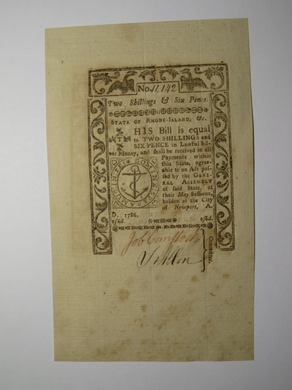 No. 11,142
Two Shillings & Six Pence.
STATE OF RHODE-ISLAND, &c.
THIS Bill is equal
to TWO SHILLINGS and
SIX PENCE in Lawful Sil-
ver Money, and shall be received in all
Payments within
this State, agree-
able to an Act pas-
sed by the GENERAL
ASSEMBLY
of said State, at
their May Sessions,
holden at the City
of Newport, A.
D. 1786.
2s6d. 2s6d.
Job Comstock